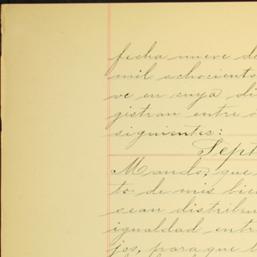 fecha nueve de
mil ochocientos
ve en cuya di
gistran entre o
siguientes:
Sept
Mando, que
to de mis bie
cean distribu
igualdad entr
jos, para que